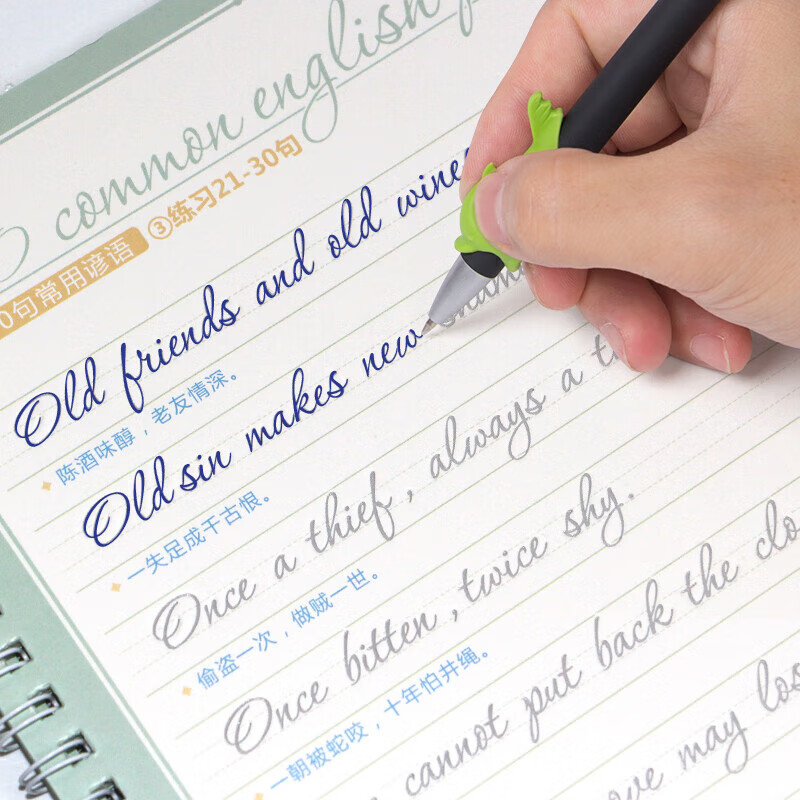 common english
0句常用谚语 ③练习21-30句
Old friends and old wine
陈酒味醇，老友情深。
Old sin makes new
一失足成千古恨。
Once a thief, always a t
偷盗一次，做贼一世。
Once bitten, twice shy.
一朝被蛇咬，十年怕井绳。
cannot put back the clo
ve may los